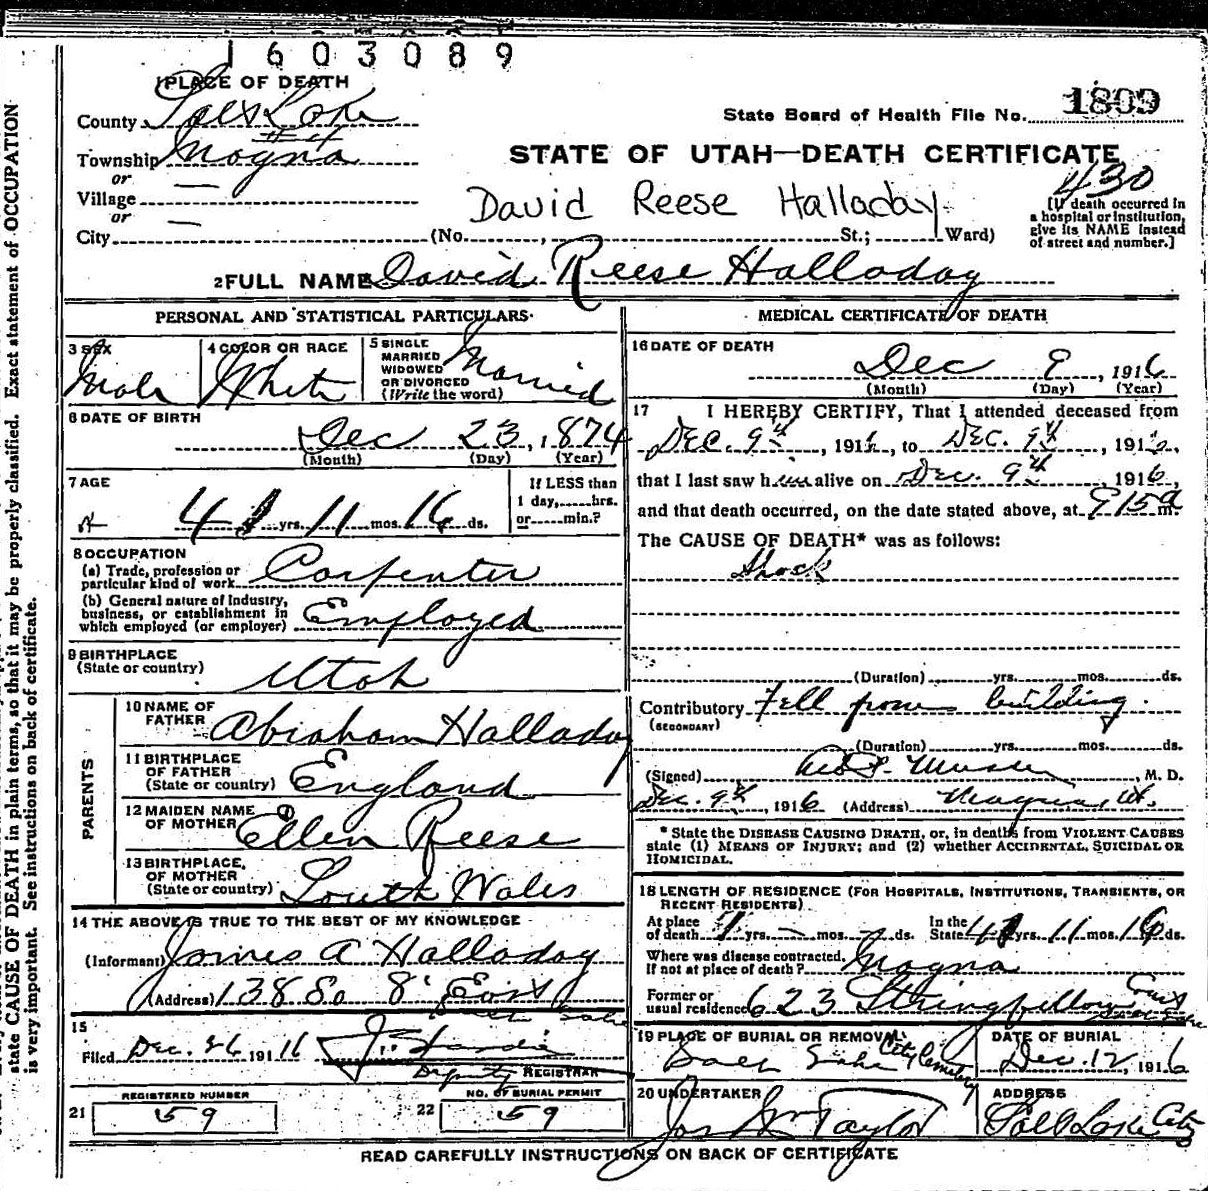 1603089
1 PLACE OF DEATH
County Salt Lake
State Board of Health File No. 1809
Township Magna
STATE OF UTAH—DEATH CERTIFICATE
or
430
Village —
David Reese Halladay
[If death occurred in a hospital or institution, give its NAME instead of street and number.]
or
City — (No. , St.; Ward)
2 FULL NAME David Reese Halladay
PERSONAL AND STATISTICAL PARTICULARS
3 SEX Male
4 COLOR OR RACE White
5 SINGLE MARRIED WIDOWED OR DIVORCED (Write the word) Married
6 DATE OF BIRTH
Dec 23, 1874
(Month) (Day) (Year)
7 AGE
41 yrs. 11 mos. 16 ds.
If LESS than 1 day, hrs. or min.?
8 OCCUPATION
(a) Trade, profession or particular kind of work Carpenter
(b) General nature of Industry, business, or establishment in which employed (or employer) Employed
9 BIRTHPLACE (State or country) Utah
PARENTS
10 NAME OF FATHER Abraham Halladay
11 BIRTHPLACE OF FATHER (State or country) England
12 MAIDEN NAME OF MOTHER Ellen Reese
13 BIRTHPLACE, OF MOTHER (State or country) South Wales
14 THE ABOVE IS TRUE TO THE BEST OF MY KNOWLEDGE
(Informant) James A Halladay
(Address) 1388 So 8' East
Salt Lake
15
Filed Dec. 26 1916
Deputy REGISTRAR
REGISTERED NUMBER
21 59
NO. OF BURIAL PERMIT
22 59
MEDICAL CERTIFICATE OF DEATH
16 DATE OF DEATH
Dec 9, 1916
(Month) (Day) (Year)
17 I HEREBY CERTIFY, That I attended deceased from
Dec. 9th, 1916, to Dec. 9th, 1916,
that I last saw him alive on Dec. 9th, 1916,
and that death occurred, on the date stated above, at 915 a m.
The CAUSE OF DEATH* was as follows:
Shock
(Duration) yrs. mos. ds.
Contributory Fell from building.
(SECONDARY)
(Duration) yrs. mos. ds.
(Signed) , M. D.
Dec. 9th, 1916 (Address) Magna, Ut.
* State the DISEASE CAUSING DEATH, or, in deaths from VIOLENT CAUSES
state (1) MEANS OF INJURY; and (2) whether ACCIDENTAL, SUICIDAL OR
HOMICIDAL.
18 LENGTH OF RESIDENCE (FOR HOSPITALS, INSTITUTIONS, TRANSIENTS, OR
RECENT RESIDENTS)
At place of death yrs. – mos. – ds. In the State 41 yrs. 11 mos. 16 ds.
Where was disease contracted, If not at place of death? Magna
Former or usual residence 623 Stringfellow Court Salt Lake
19 PLACE OF BURIAL OR REMOVAL
Salt Lake City Cemetery
DATE OF BURIAL
Dec. 12, 1916
20 UNDERTAKER
Jos Wm Taylor
ADDRESS
Salt Lake City
READ CAREFULLY INSTRUCTIONS ON BACK OF CERTIFICATE
state CAUSE OF DEATH in plain terms, so that it may be properly classified. Exact statement of OCCUPATION
is very important. See instructions on back of certificate.